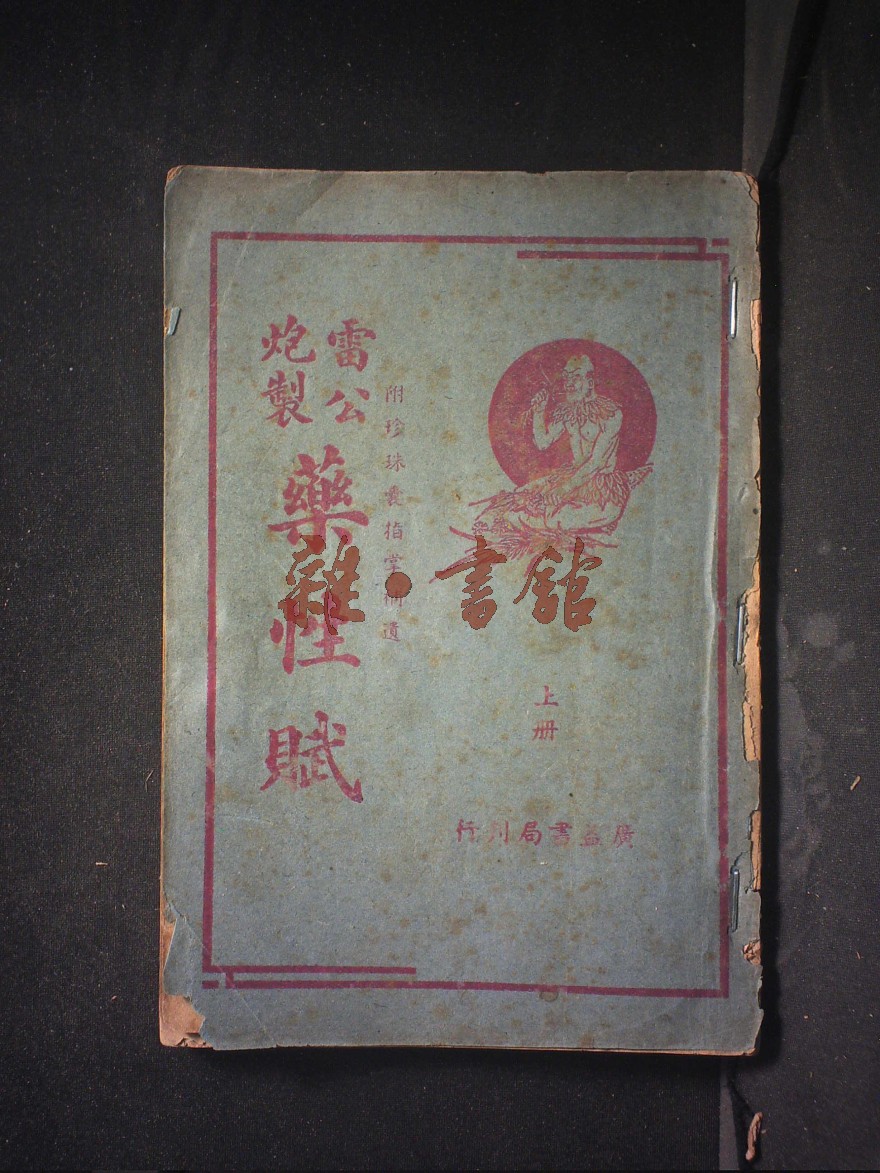 雷公
炮製
藥性賦
附珍珠囊指掌補遺
上册
廣益書局刋行
雜·書館